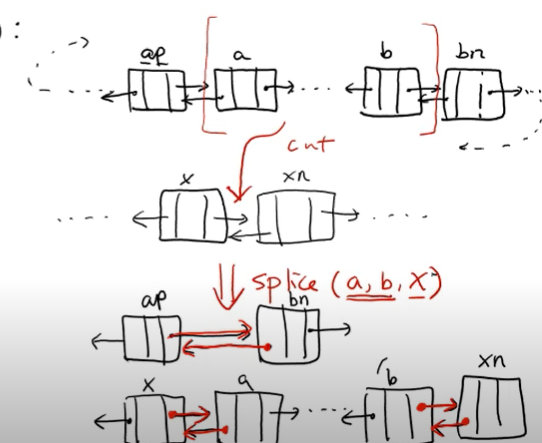 ) :
ap a b bn
cut
x xn
splice (a, b, x)
ap bn
x a b xn